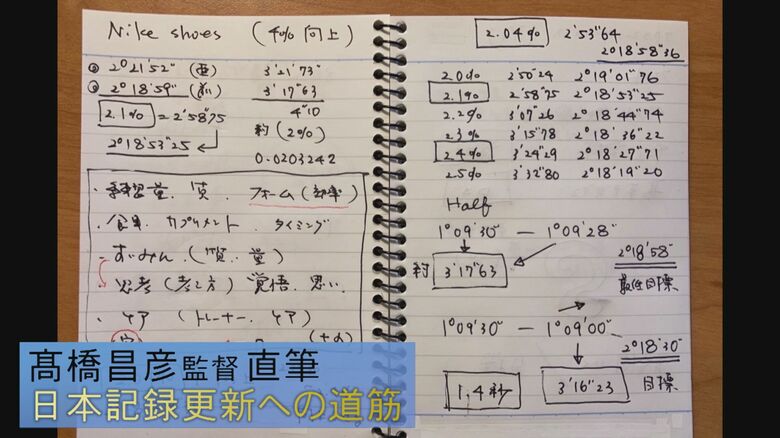 Nike shoes (4% 向上)
① 2°21'52" (亜) 3'21"73
② 2°18'59" 3'17"63
4"10
2.1% = 2'58"75 約 (2%)
2°18'53"25 0.0203242
・練習量、質、フォーム(効率)
・食事、サプリメント、タイミング
・すいみん、(質、量)
・思考 (考え方) 覚悟、思い、
・ケア (トレーナー、ケア)
2.04% 2'53"64
2°18'58"36
2.0% 2'50"24 2°19'01"76
2.1% 2'58"75 2°18'53"25
2.2% 3'07"26 2°18'44"74
2.3% 3'15"78 2°18'36"22
2.4% 3'24"29 2°18'27"71
2.5% 3'32"80 2°18'19"20
Half
1°09'30" — 1°09'28"
約 3'17"63 2°18'58"
最低目標
1°09'30" — 1°09'00"
2°18'30"
1.4秒 3'16"23 目標
髙橋昌彦監督 直筆
日本記録更新への道筋